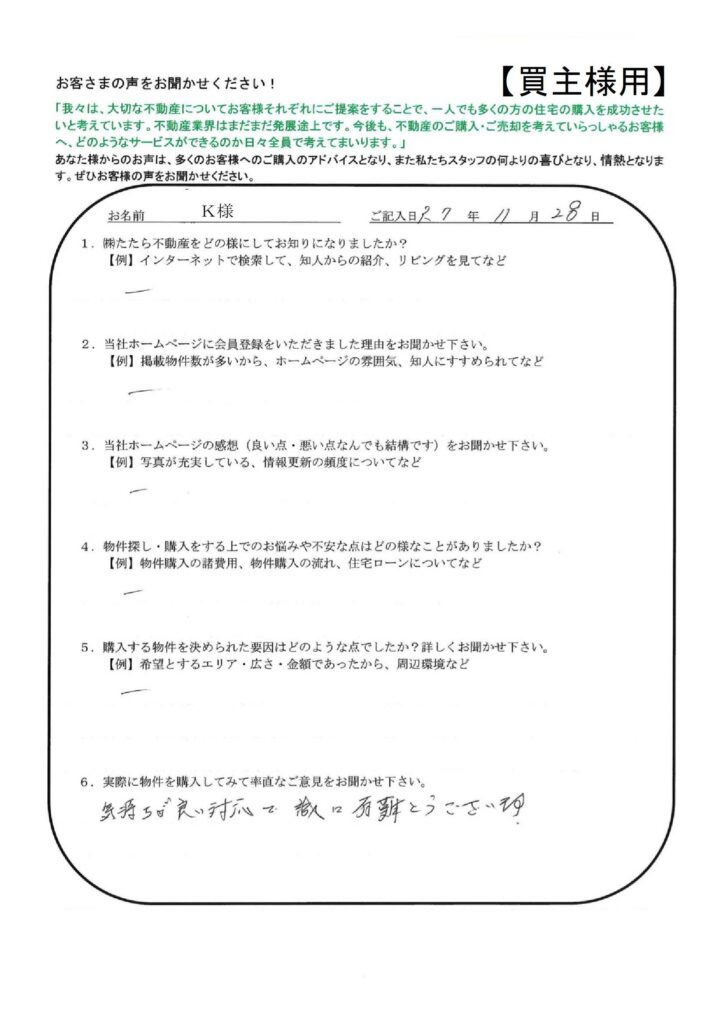 お客さまの声をお聞かせください！
【買主様用】
「我々は、大切な不動産についてお客様それぞれにご提案をすることで、一人でも多くの方の住宅の購入を成功させた
いと考えています。不動産業界はまだまだ発展途上です。今後も、不動産のご購入・ご売却を考えていらっしゃるお客様
へ、どのようなサービスができるのか日々全員で考えてまいります。」
あなた様からのお声は、多くのお客様へのご購入のアドバイスとなり、また私たちスタッフの何よりの喜びとなり、情熱となりま
す。ぜひお客様の声をお聞かせください。
お名前 K様 ご記入日 27 年 11 月 28 日
1．㈱たたら不動産をどの様にしてお知りになりましたか？
【例】インターネットで検索して、知人からの紹介、リビングを見てなど
ー
2．当社ホームページに会員登録をいただきました理由をお聞かせ下さい。
【例】掲載物件数が多いから、ホームページの雰囲気、知人にすすめられてなど
ー
3．当社ホームページの感想（良い点・悪い点なんでも結構です）をお聞かせ下さい。
【例】写真が充実している、情報更新の頻度についてなど
ー
4．物件探し・購入をする上でのお悩みや不安な点はどの様なことがありましたか？
【例】物件購入の諸費用、物件購入の流れ、住宅ローンについてなど
ー
5．購入する物件を決められた要因はどのような点でしたか？詳しくお聞かせ下さい。
【例】希望とするエリア・広さ・金額であったから、周辺環境など
ー
6．実際に物件を購入してみて率直なご意見をお聞かせ下さい。
気持ちが良い対応で 誠に 有難とうございます